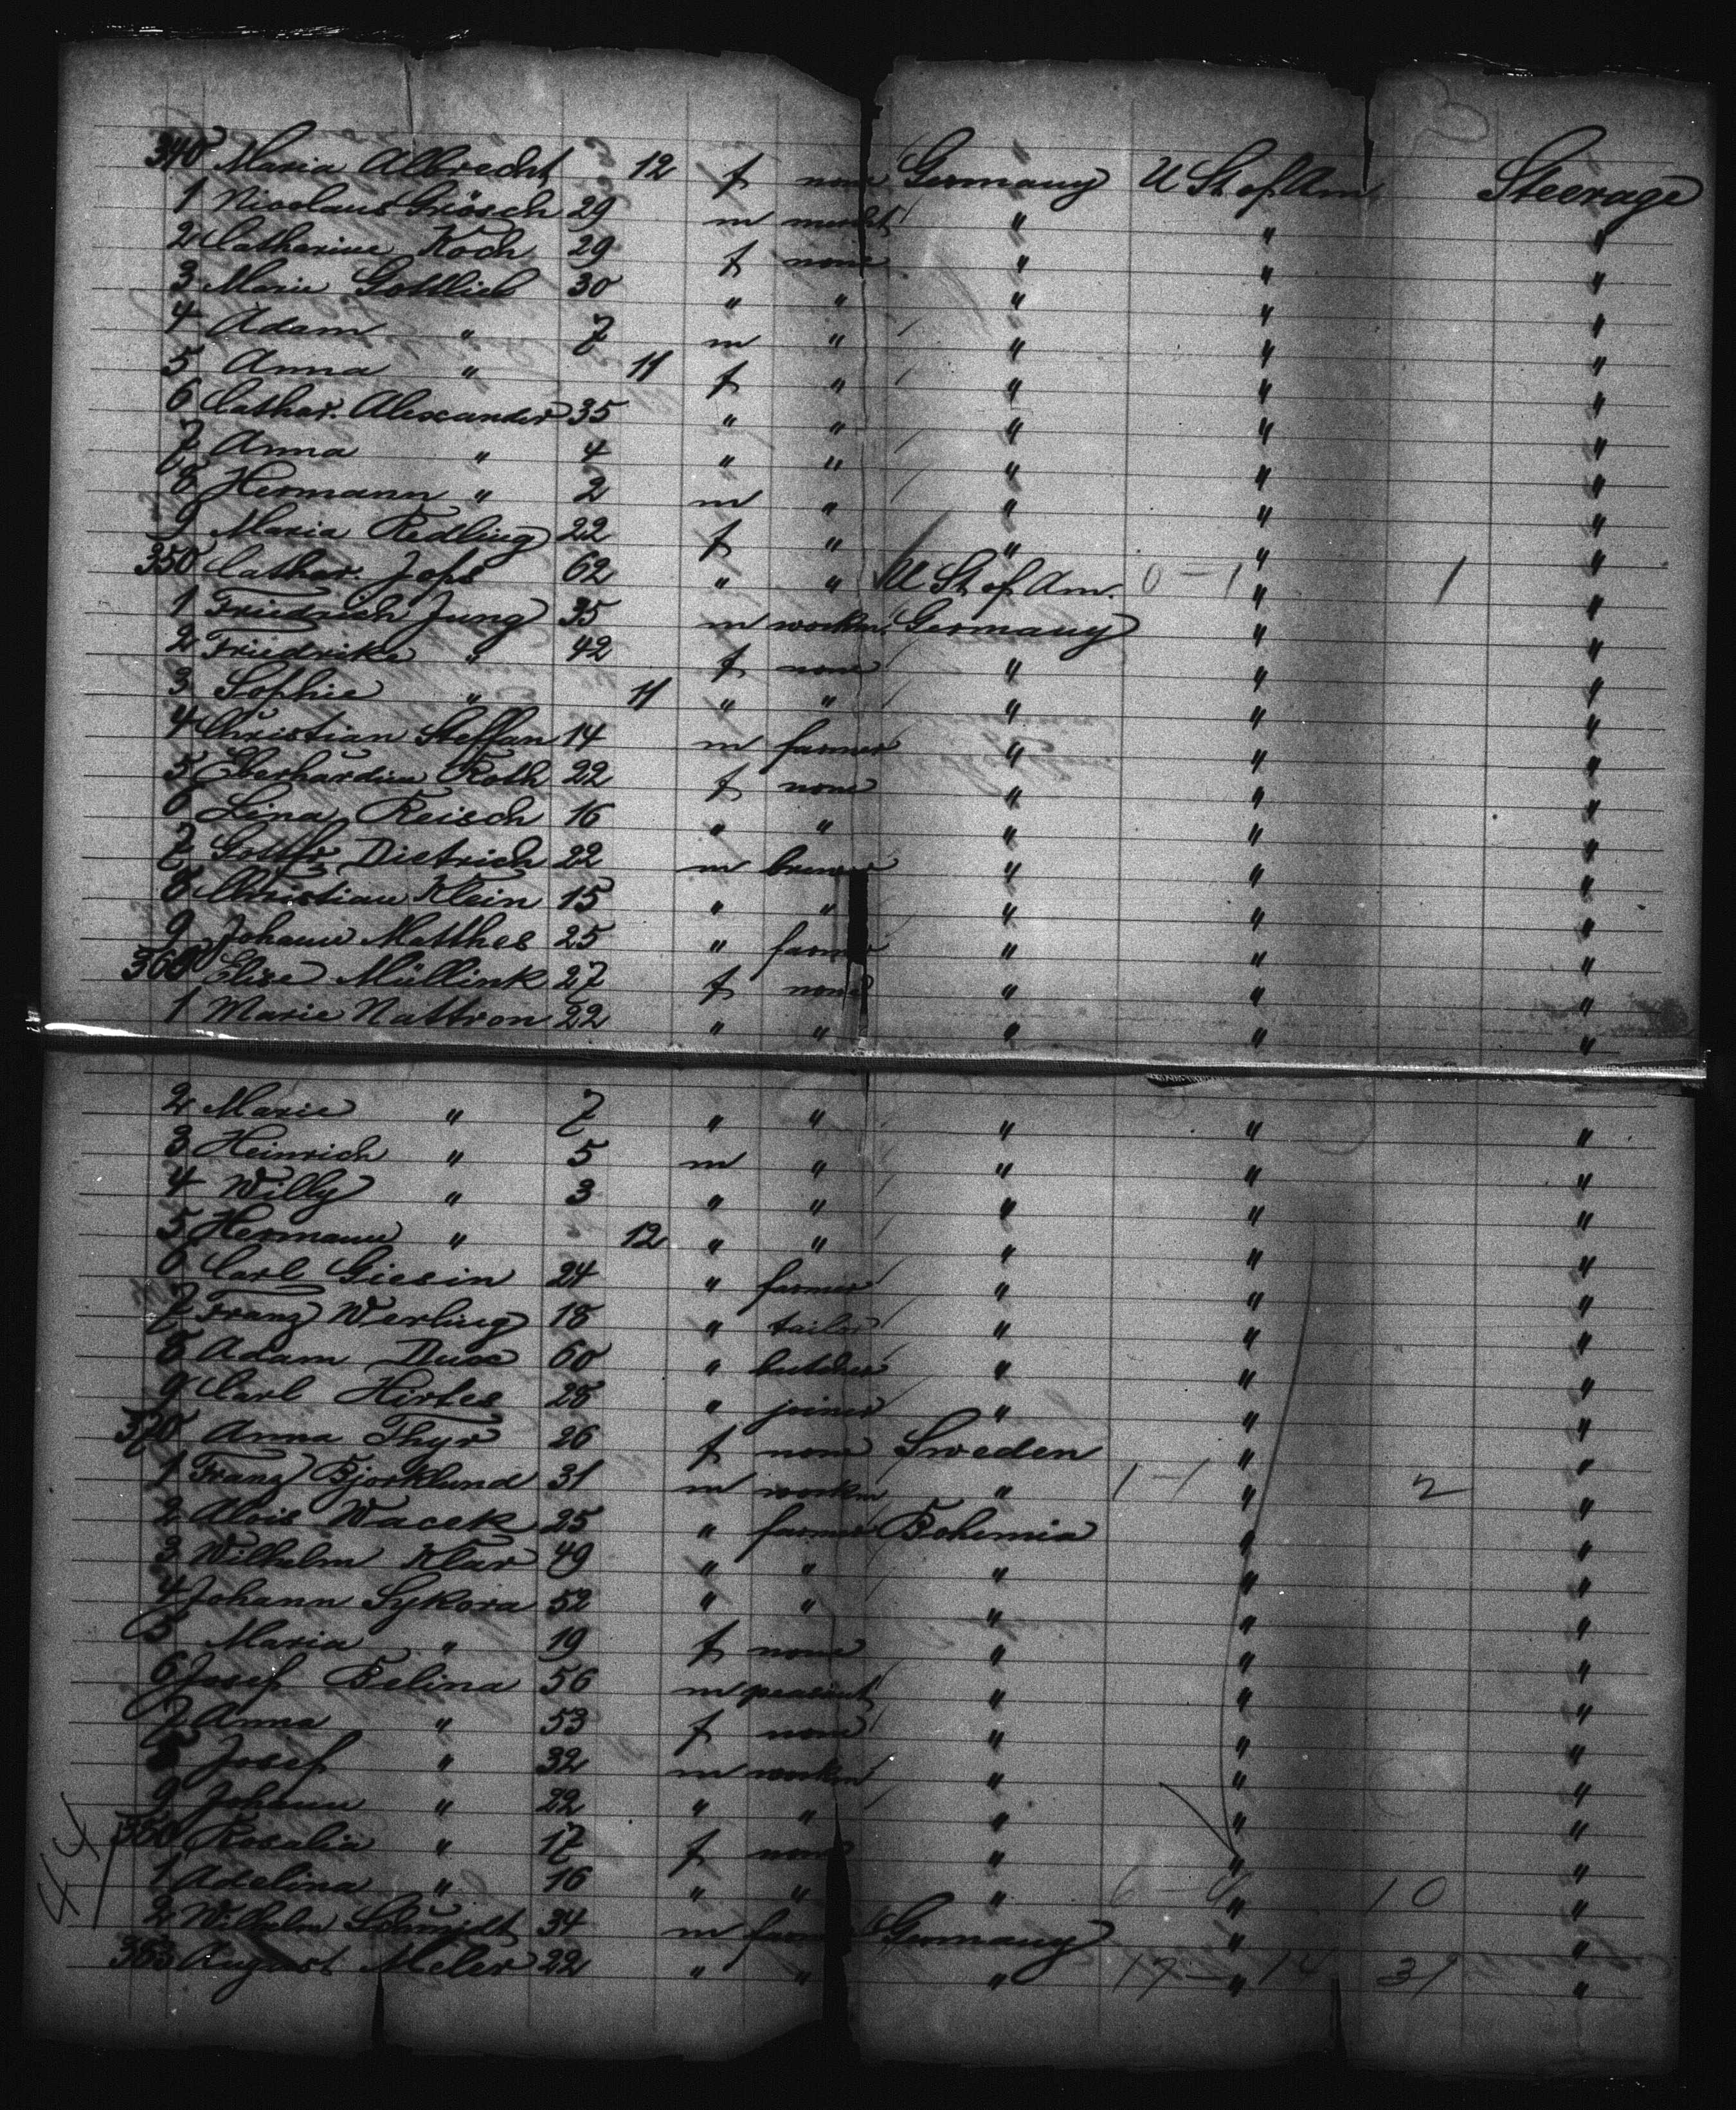 340 Maria Albrecht 12 f none Germany U St of Am. Steerage
1 Nicolaus Grösch 29 m " " "
2 Catharine Koch 29 f none " " "
3 Marie Gottlieb 30 " " " " "
4 Adam " 7 m " " " "
5 Anna " 11 f " " " "
6 Cathar. Alexander 35 " " " " "
7 Anna " 4 " " " " "
8 Hermann " 2 m " " " "
9 Maria Redling 22 f " " " "
350 Cathar. Jops 62 " " U St of Am. 0 - 1 " 1 "
1 Friedrich Jung 35 m workm. Germany " "
2 Friedrike " 42 f none " " "
3 Sophie " 11 " " " " "
4 Christian Steffan 14 m farmer " " "
5 Eberhardine Roth 22 f none " " "
6 Lina Reisch 16 " " " " "
7 Gottfr. Dietrich 22 m brewer " " "
8 Christian Klein 15 " " " " "
9 Johann Matthes 25 " farmer " " "
360 Elise Müllink 27 f none " " "
1 Marie Nattron 22 " " " " "
2 Marie " 7 " " " " "
3 Heinrich " 5 m " " " "
4 Willy " 3 " " " " "
5 Hermann " 12 " " " " "
6 Carl Giesin 24 " farmer " " "
7 Franz Werling 18 " tailor " " "
8 Adam Dux 60 " butcher " " "
9 Carl Hirtes 28 " joiner " " "
370 Anna Thyr 26 f none Sweden " "
1 Franz Bjorklund 31 m workm " 1 - 1 " 2 "
2 Alois Wacek 25 " farmer Bohemia " "
3 Wilhelm Klar 49 " " " " "
4 Johann Sykora 52 " " " " "
5 Maria " 19 f none " " "
6 Josef Belina 56 m peasant " " "
7 Anna " 53 f none " " "
8 Josef " 32 m workm " " "
9 Johann " 22 " " " " "
380 Rosalia " 17 f none " " "
1 Adelina " 16 " " " " 10 "
2 Wilhelm Schmidt 34 m farmer Germany " "
383 August Meler 22 " " " 17 - 14 " 31 "
44